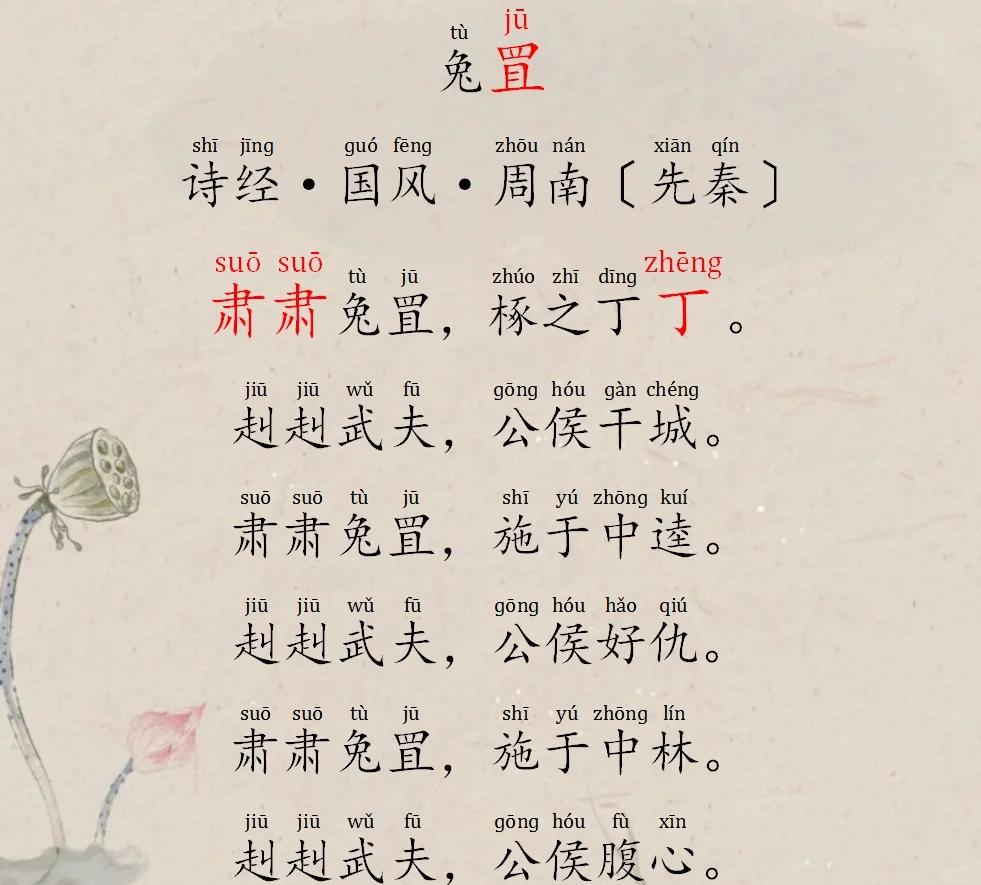 tù jū
兔罝
shī jīng guó fēng zhōu nán xiān qín
诗经·国风·周南〔先秦〕
suō suō tù jū zhúo zhī dīng zhēng
肃肃兔罝，椓之丁丁。
jiū jiū wǔ fū gōng hóu gàn chéng
赳赳武夫，公侯干城。
suō suō tù jū shī yú zhōng kuí
肃肃兔罝，施于中逵。
jiū jiū wǔ fū gōng hóu hǎo qiú
赳赳武夫，公侯好仇。
suō suō tù jū shī yú zhōng lín
肃肃兔罝，施于中林。
jiū jiū wǔ fū gōng hóu fù xīn
赳赳武夫，公侯腹心。